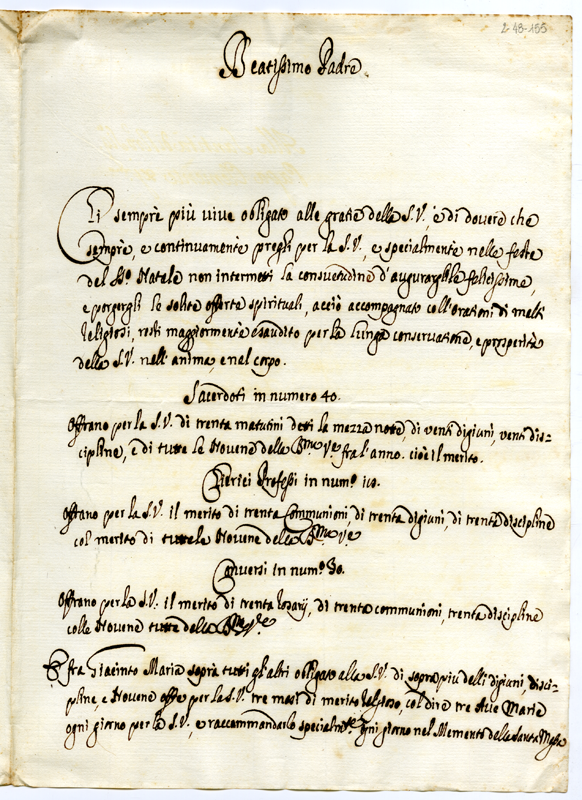 2-48-155
Beatissimo Padre
Chi sempre più vive obligato alle gratie della S.V., è di dovere che
sempre, e continuamente preghi per la S.V., e specialmente nelle feste
del SS.o Natale non intermetti la consuetudine d'augurargliele felicissime,
e porgergli le solite offerte spirituali, acciò accompagnato coll'orationi di molti
religiosi, resti maggiormente esaudito per la lunga conservatione, e prosperità
della S.V. nell'anima, e nel corpo.
Sacerdoti in numero 40.
Offrano per la S.V. di trenta matutini detti la mezza notte, di venti digiuni, venti dis-
cipline, e di tutte le Novene della B.ma V.e fra l'anno. cioè il merito.
Chierici Professi in num.o
Offrano per la S.V. il merito di trenta Communioni, di trenta digiuni, di trenta discipline
col merito di tutte le Novene della B.ma V.e
Conversi in num.o 30.
Offrano per la S.V. il merito di trenta rosarij, di trenta communioni, trenta discipline
colle Novene tutte della B.ma V.e
fra Giacinto Maria sopra tutti gl'altri obligato alla S.V. di sopra più delli digiuni, disci-
pline, e Novene offe per la S.V. tre mesi di merito col dire tre Ave Maria
ogni giorno per la S.V., e raccommandarlo specialm.te ogni giorno nel Memento della Santa Messa